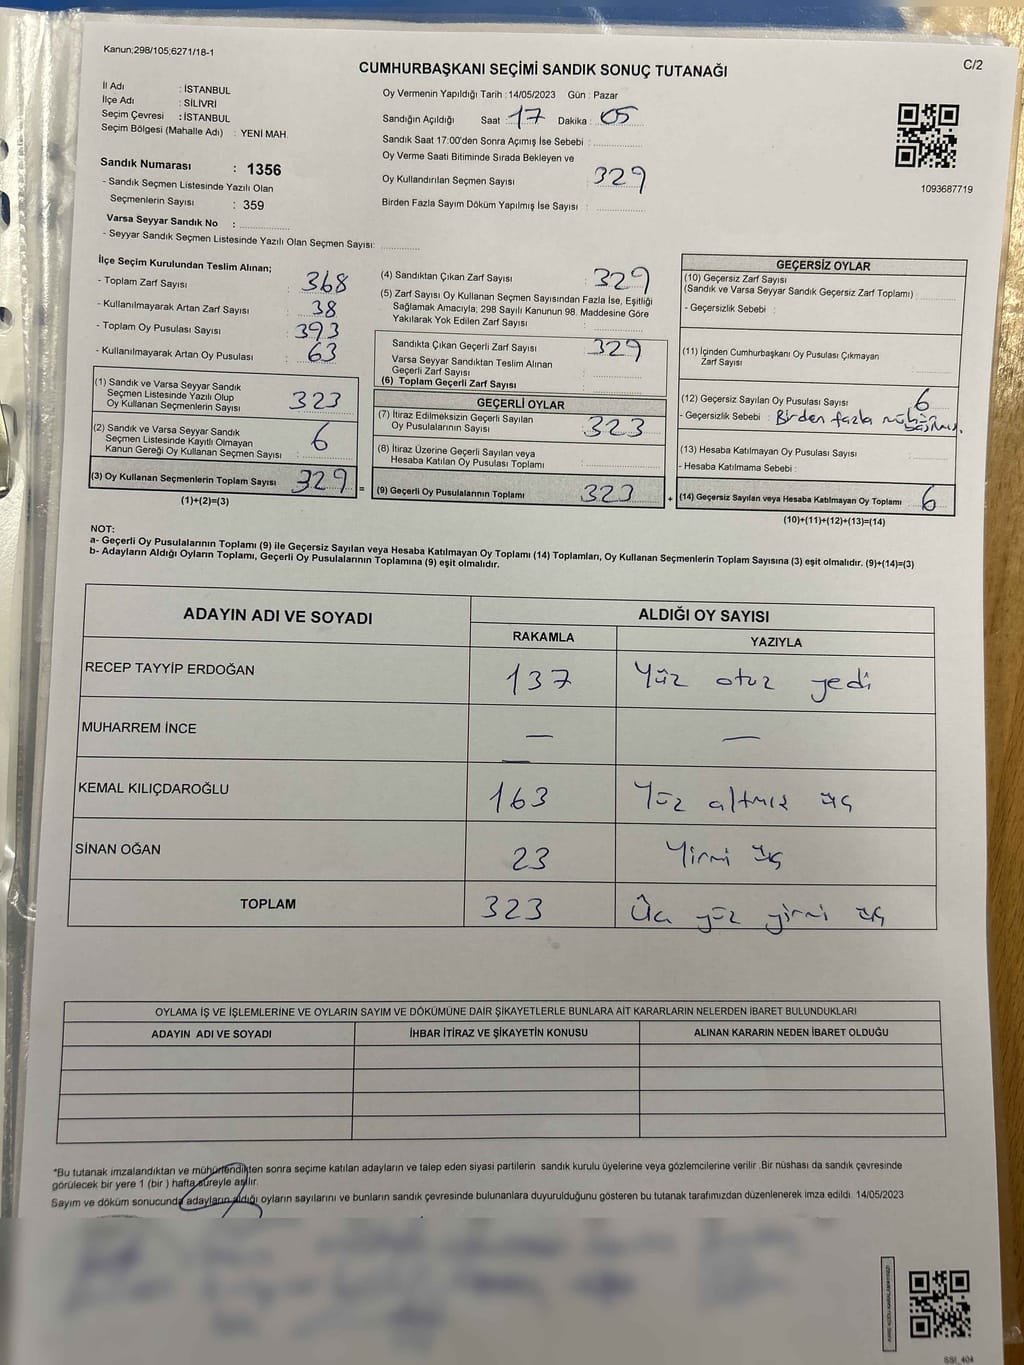 Kanun;298/105;6271/18-1
C/2
CUMHURBAŞKANI SEÇİMİ SANDIK SONUÇ TUTANAĞI
İl Adı : İSTANBUL
İlçe Adı : SİLİVRİ
Seçim Çevresi : İSTANBUL
Seçim Bölgesi (Mahalle Adı) : YENİ MAH.
Sandık Numarası : 1356
- Sandık Seçmen Listesinde Yazılı Olan
Seçmenlerin Sayısı : 359
Varsa Seyyar Sandık No :
- Seyyar Sandık Seçmen Listesinde Yazılı Olan Seçmen Sayısı:
Oy Vermenin Yapıldığı Tarih :14/05/2023 Gün : Pazar
Sandığın Açıldığı Saat : 17 Dakika : 05
Sandık Saat 17:00'den Sonra Açımış İse Sebebi :
Oy Verme Saati Bitiminde Sırada Bekleyen ve
Oy Kullandırılan Seçmen Sayısı 329
Birden Fazla Sayım Döküm Yapılmış İse Sayısı :
1093687719
İlçe Seçim Kurulundan Teslim Alınan;
- Toplam Zarf Sayısı : 368
- Kullanılmayarak Artan Zarf Sayısı : 38
- Toplam Oy Pusulası Sayısı : 393
- Kullanılmayarak Artan Oy Pusulası : 63
(1) Sandık ve Varsa Seyyar Sandık
Seçmen Listesinde Yazılı Olup
Oy Kullanan Seçmenlerin Sayısı : 323
(2) Sandık ve Varsa Seyyar Sandık
Seçmen Listesinde Kayıtlı Olmayan
Kanun Gereği Oy Kullanan Seçmen Sayısı : 6
(3) Oy Kullanan Seçmenlerin Toplam Sayısı : 329 =
(1)+(2)=(3)
(4) Sandıktan Çıkan Zarf Sayısı : 329
(5) Zarf Sayısı Oy Kullanan Seçmen Sayısından Fazla İse, Eşitliği
Sağlamak Amacıyla; 298 Sayılı Kanunun 98. Maddesine Göre
Yakılarak Yok Edilen Zarf Sayısı :
Sandıkta Çıkan Geçerli Zarf Sayısı : 329
Varsa Seyyar Sandıktan Teslim Alınan
Geçerli Zarf Sayısı :
(6) Toplam Geçerli Zarf Sayısı :
GEÇERLİ OYLAR
(7) İtiraz Edilmeksizin Geçerli Sayılan
Oy Pusulalarının Sayısı : 323
(8) İtiraz Üzerine Geçerli Sayılan veya
Hesaba Katılan Oy Pusulası Toplamı :
(9) Geçerli Oy Pusulalarının Toplamı : 323 +
GEÇERSİZ OYLAR
(10) Geçersiz Zarf Sayısı
(Sandık ve Varsa Seyyar Sandık Geçersiz Zarf Toplamı) :
- Geçersizlik Sebebi :
(11) İçinden Cumhurbaşkanı Oy Pusulası Çıkmayan
Zarf Sayısı :
(12) Geçersiz Sayılan Oy Pusulası Sayısı : 6
- Geçersizlik Sebebi : Birden fazla mühür basılmış.
(13) Hesaba Katılmayan Oy Pusulası Sayısı :
- Hesaba Katılmama Sebebi :
(14) Geçersiz Sayılan veya Hesaba Katılmayan Oy Toplamı : 6
(10)+(11)+(12)+(13)=(14)
NOT:
a- Geçerli Oy Pusulalarının Toplamı (9) ile Geçersiz Sayılan veya Hesaba Katılmayan Oy Toplamı (14) Toplamları, Oy Kullanan Seçmenlerin Toplam Sayısına (3) eşit olmalıdır. (9)+(14)=(3)
b- Adayların Aldığı Oyların Toplamı, Geçerli Oy Pusulalarının Toplamına (9) eşit olmalıdır.
ADAYIN ADI VE SOYADI ALDIĞI OY SAYISI
RAKAMLA YAZIYLA
RECEP TAYYİP ERDOĞAN 137 Yüz otuz yedi
MUHARREM İNCE — —
KEMAL KILIÇDAROĞLU 163 Yüz altmış üç
SİNAN OĞAN 23 Yirmi üç
TOPLAM 323 Üç yüz yirmi üç
OYLAMA İŞ VE İŞLEMLERİNE VE OYLARIN SAYIM VE DÖKÜMÜNE DAİR ŞİKAYETLERLE BUNLARA AİT KARARLARIN NELERDEN İBARET BULUNDUKLARI
ADAYIN ADI VE SOYADI İHBAR İTİRAZ VE ŞİKAYETİN KONUSU ALINAN KARARIN NEDEN İBARET OLDUĞU
*Bu tutanak imzalandıktan ve mühürlendikten sonra seçime katılan adayların ve talep eden siyasi partilerin sandık kurulu üyelerine veya gözlemcilerine verilir .Bir nüshası da sandık çevresinde
görülecek bir yere 1 (bir ) hafta süreyle asılır.
Sayım ve döküm sonucunda adayların aldığı oyların sayılarını ve bunların sandık çevresinde bulunanlara duyurulduğunu gösteren bu tutanak tarafımızdan düzenlenerek imza edildi. 14/05/2023
SSI_404